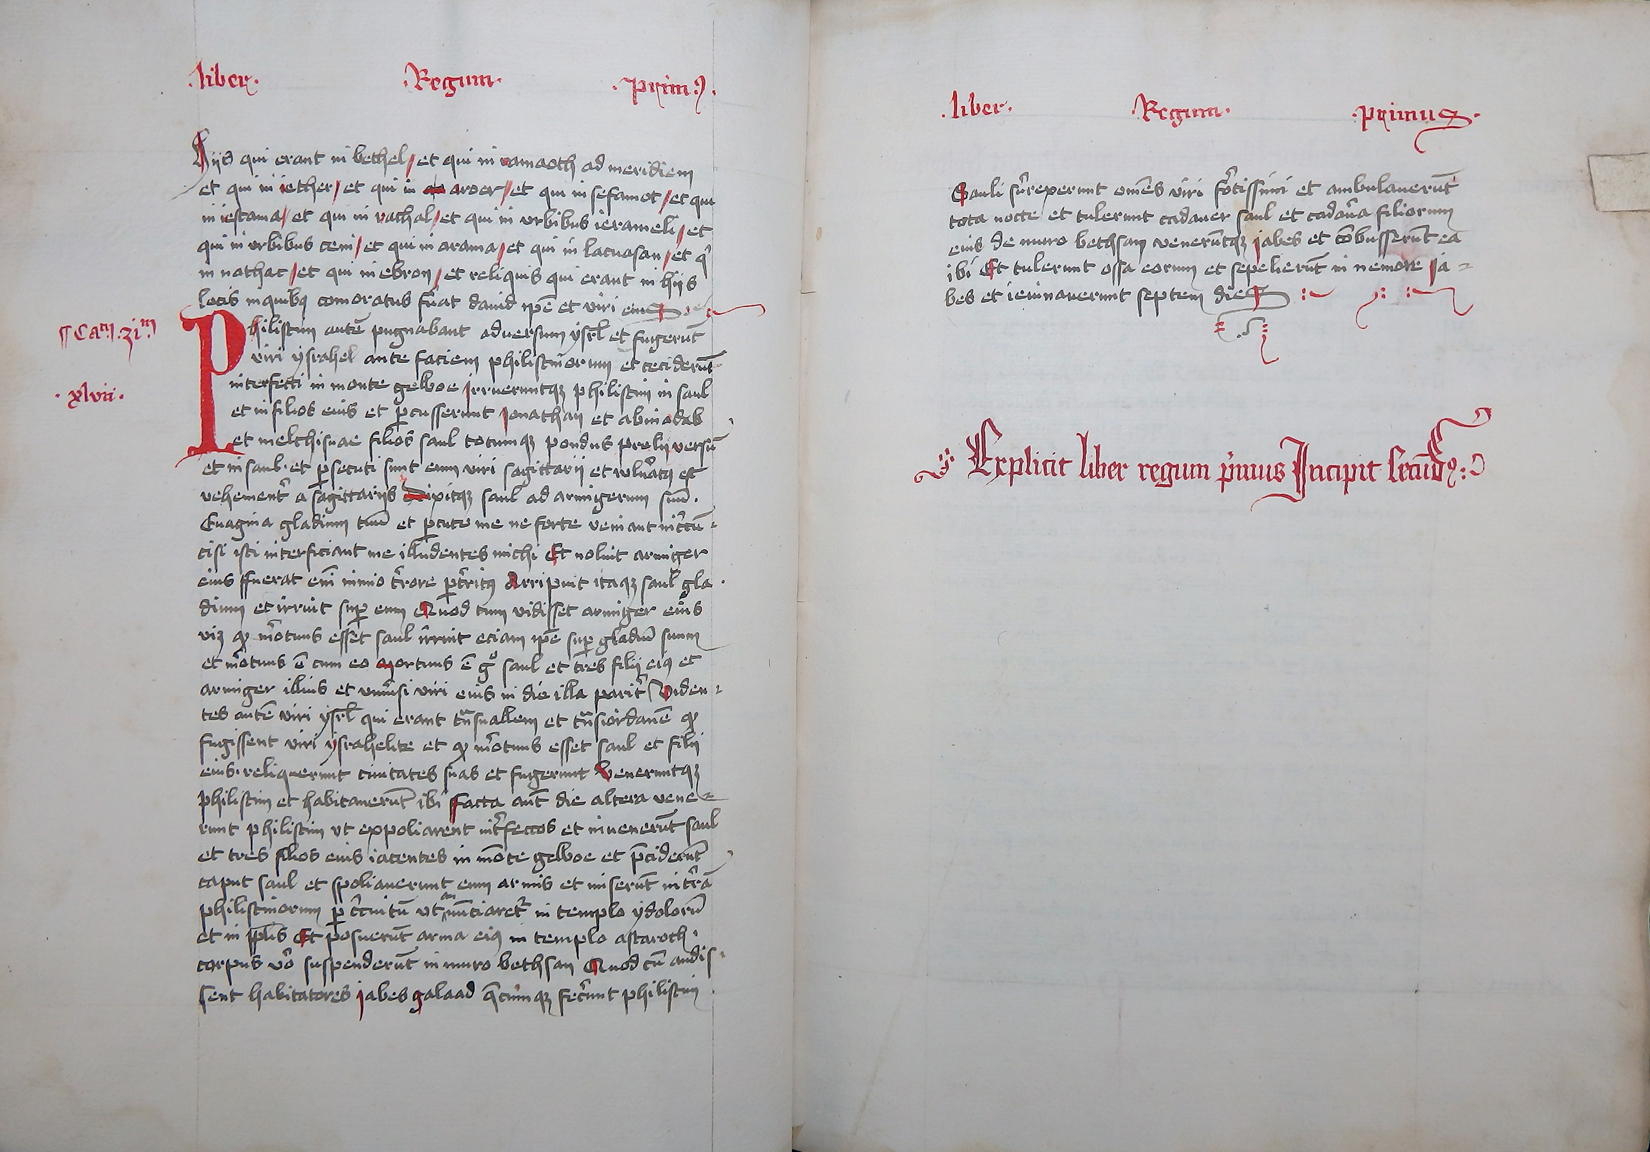 liber. Regum. prim9.
Hiis qui erant in bethel / et qui in ramaoth ad meridiem
et qui in iether / et qui in aroer / et qui in sefamot / et qui
in iestama / et qui in rachal / et qui in vrbibus ierameli / et
qui in vrbibus ceni / et qui in arama / et qui in lacuasan / et q̄
in nathac / et qui in ebron / et reliquis qui erant in hiis
locis in quibꝫ comoratus fūat dauid ip̄e et viri eius
Philistim autē pugnabant aduersum ysrl̄ et fugerūt
viri ysrahel ante faciem philistinorum et ceciderūt
interfecti in monte gelboe Irrueruntqꝫ philistim in saul
et in filios eius et ꝑcusserunt ionathan et abinadab
et melchisuae filios saul totumqꝫ pondus prelij versū
xlvii.
et in saul et ꝑsecuti sunt eum viri sagittarij et vuln̄atꝯ est
vehement̄ a sagittarijs dixitqꝫ saul ad armigerum suū.
Euagina gladium tuū et ꝑcute me ne forte veniant in c̄cū
cisi isti interficiant me illudentes michi Et noluit armiger
eius ffuerat eni nimio t̄rore ꝑt̄ritꝯ Arripuit itaqꝫ saul gla
dium et irruit suꝑ eum Quod cum vidisset armiger eius
vꝫ ꝙ m̄otuus esset saul irruit eciam ip̄e suꝑ gladiū suum
et m̄otuus ē cum eo Mortuus ē gͦ saul et tres filij eiꝯ et
armiger illius et vniu̅si viri eius in die illa parit̄ Viden
tes autē viri ysrl̄ qui erant t̄nsuallem et t̄nsiordanē ꝙ
fugissent viri ysrahelite et ꝙ m̄otuus esset saul et filij
eius. reliquerunt ciuitates suas et fugerunt Veneruntqꝫ
philistim et habitauerūt ibi ffacta aūt die altera vene
runt philistim vt expoliarent int̄fectos et inuenerūt saul
et tres filios eius iacentes in mōte gelboe et p̄ciderūt
caput saul et spoliauerunt eum armis et miserūt in t̄rā
philistinorum ꝑ c̄cuitū vt annūciaret̄ in templo ydolorū
et in pp̄lis Et posuerūt arma eiꝯ in templo astaroth.
corpus vo̅ suspenderūt in muro bethsan Quod cū audis
sent habitatores iabes galaad q̄cumqꝫ fec̄unt philistim
liber. Regum. primus.
Sauli surrexerunt om̄es viri fortissimi et ambulauerūt
tota nocte et tulerunt cadauer saul et cadau̅a filiorum
eius de muro bethsan venerūtqꝫ iabes et cōbusserūt ea
ibi Et tulerunt ossa eorum et sepelierūt in nemore ia
bes et ieiunauerunt septem dies
Explicit liber regum p̄mus Incipit secūdꝯ